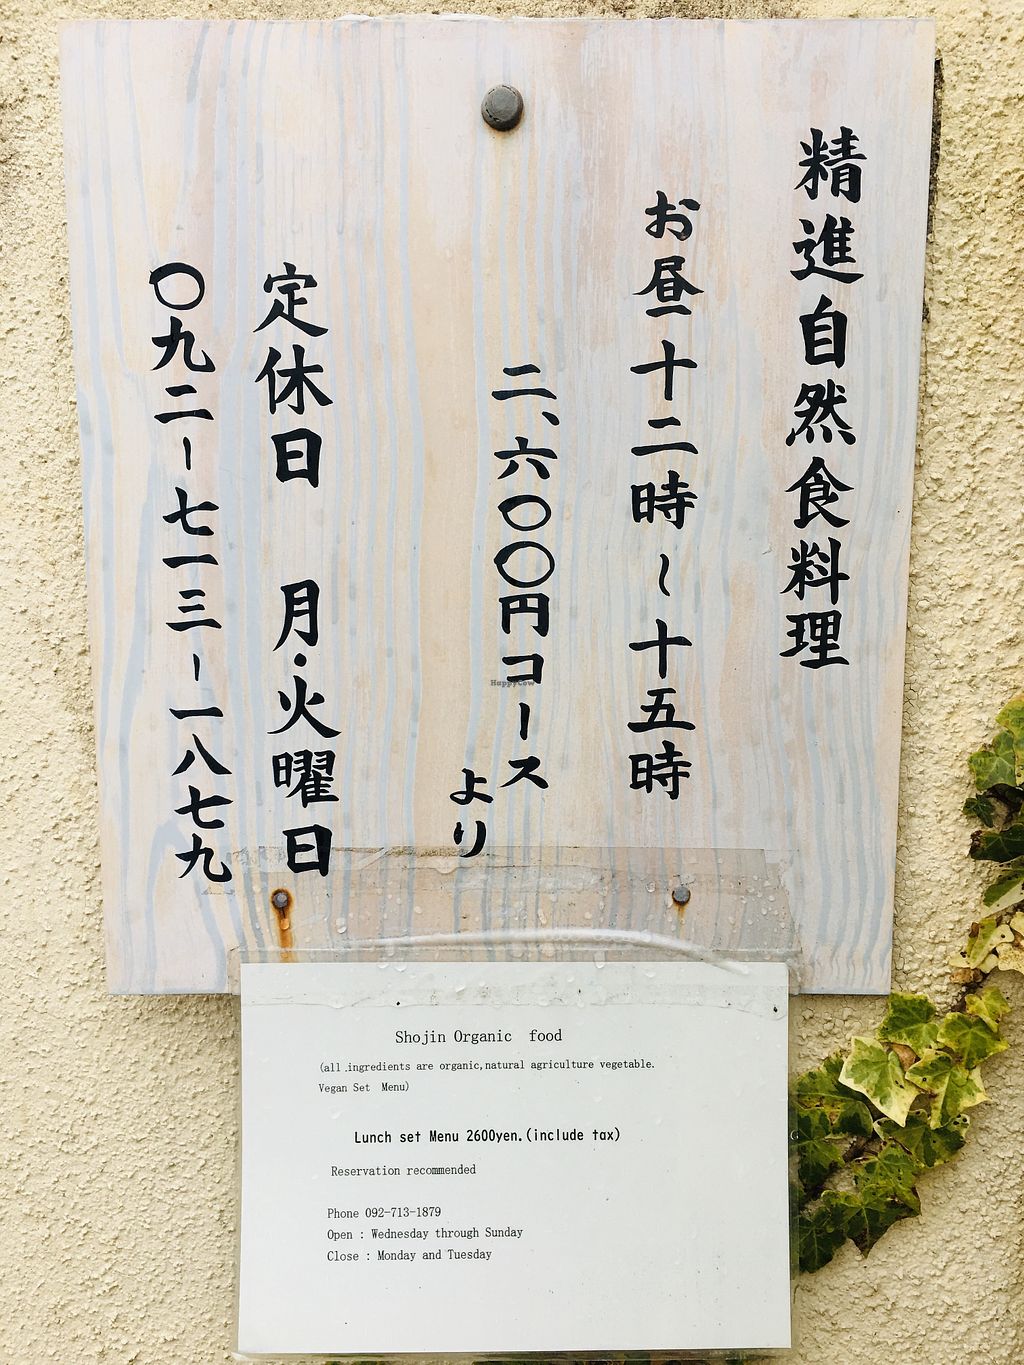 精進自然食料理
お昼十二時～十五時
二、六〇〇円コース
より
定休日 月・火曜日
〇九二-七一三-一八七九
HappyCow
Shojin Organic food
(all ingredients are organic,natural agriculture vegetable.
Vegan Set Menu)
Lunch set Menu 2600yen.(include tax)
Reservation recommended
Phone 092-713-1879
Open : Wednesday through Sunday
Close : Monday and Tuesday